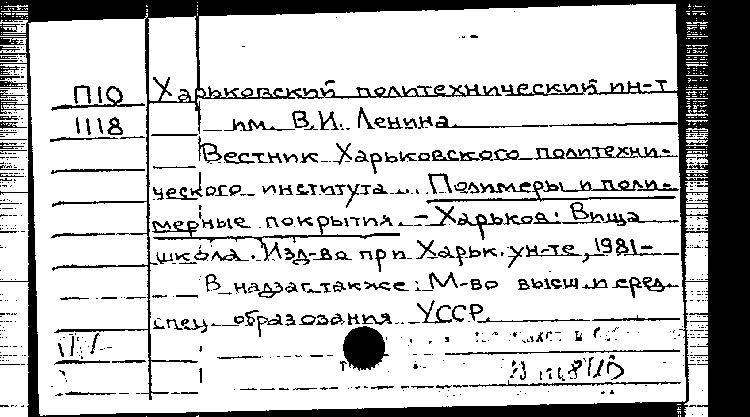 П10 Харьковский политехнический ин-т
1118 им. В.И. Ленина.
Вестник Харьковского политехни-
ческого института... Полимеры и поли-
мерные покрытия. – Харьков: Вища
школа. Изд-во при Харьк. ун-те, 1981-
В надзаг. также: М-во высш. и сред.
спец. образования УССР.